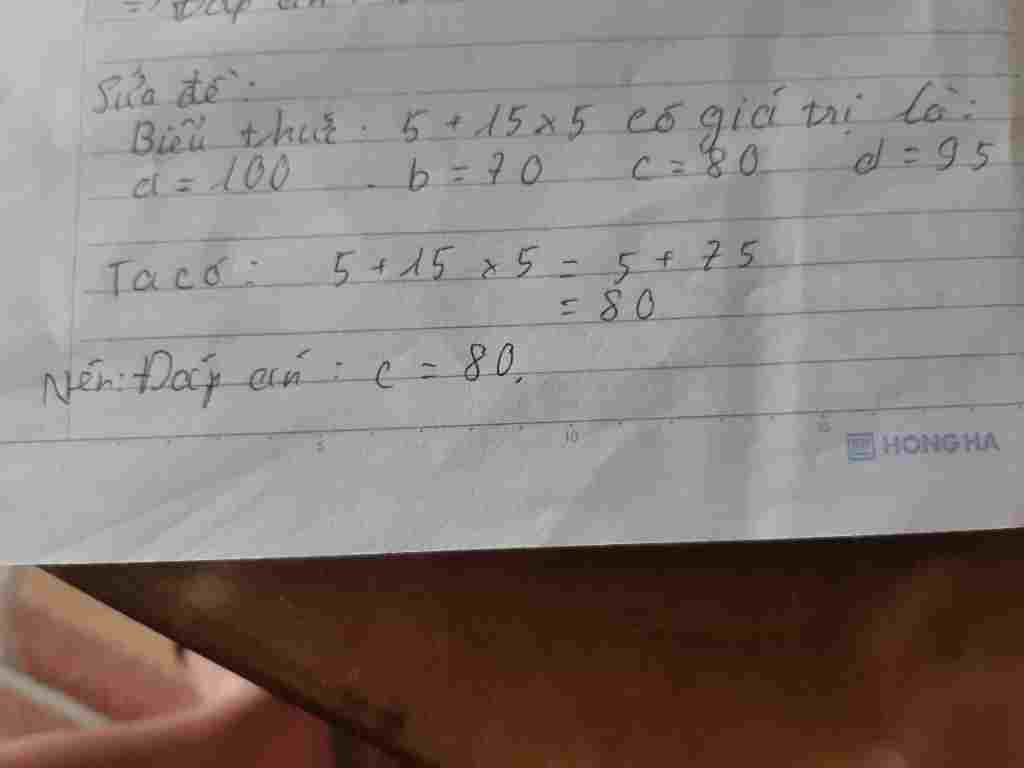 => Đáp án
Sửa đề:
Biểu thức: 5 + 15 x 5 có giá trị là:
a = 100 b = 70 c = 80 d = 95
Ta có: 5 + 15 x 5 = 5 + 75
= 80
Nên: Đáp án: c = 80.
5 10 15
HONG HA